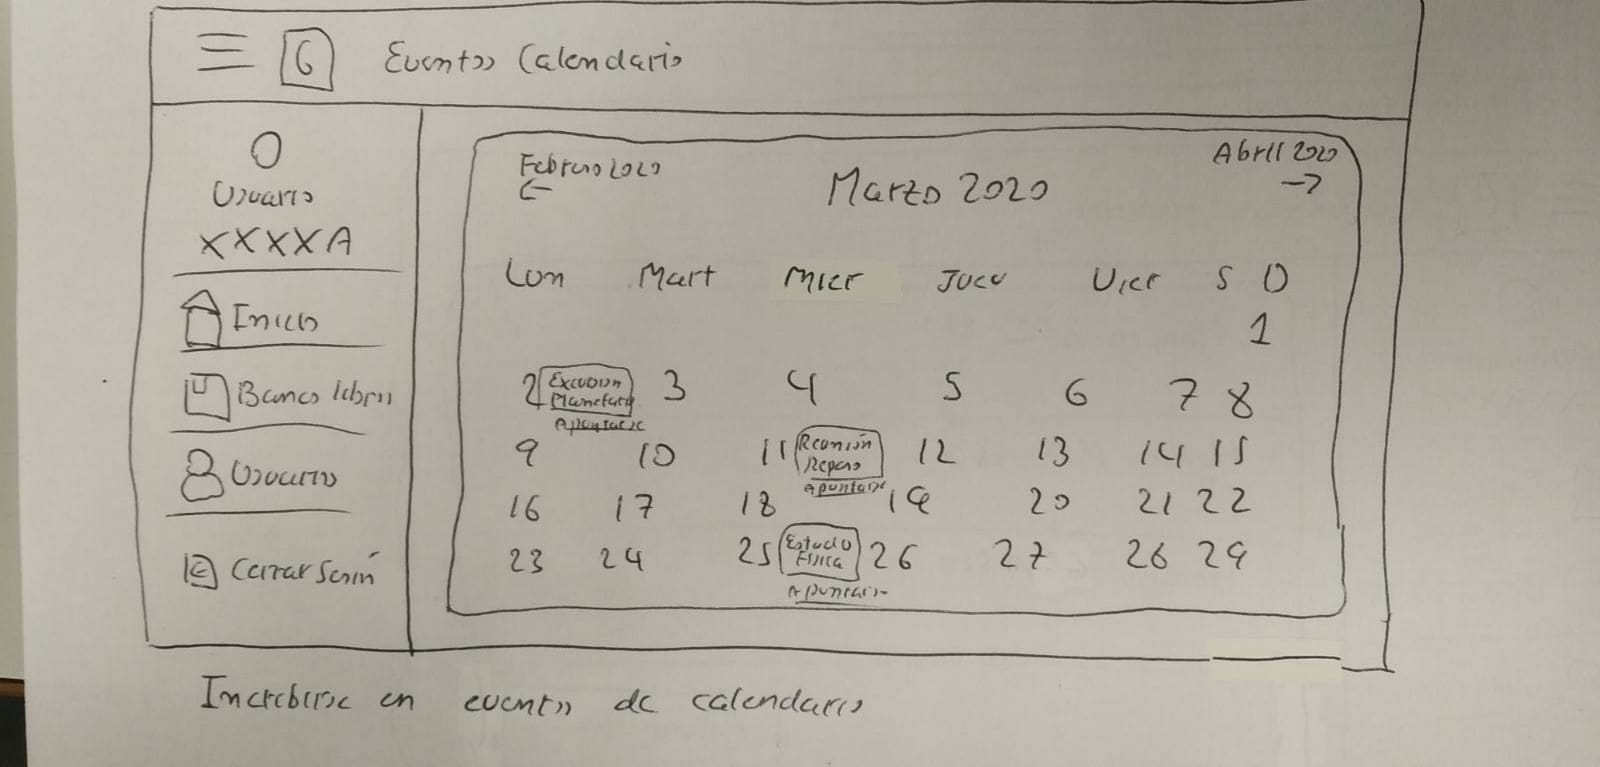 G Eventos Calendario
Usuario
XXXXA
Inicio
Banco libros
Usuario
Cerrar Sesión
Febrero 2020
Abril 2020
← Marzo 2020 →
Lun Mart Mier Juev Vier S D
1
2 Excursión 3 4 5 6 7 8
Planetario
Apuntarse
9 10 11 Reunión 12 13 14 15
Repaso
Apuntarse
16 17 18 19 20 21 22
23 24 25 Estudio 26 27 28 29
Física
Apuntarse
Incribirse en eventos de calendario